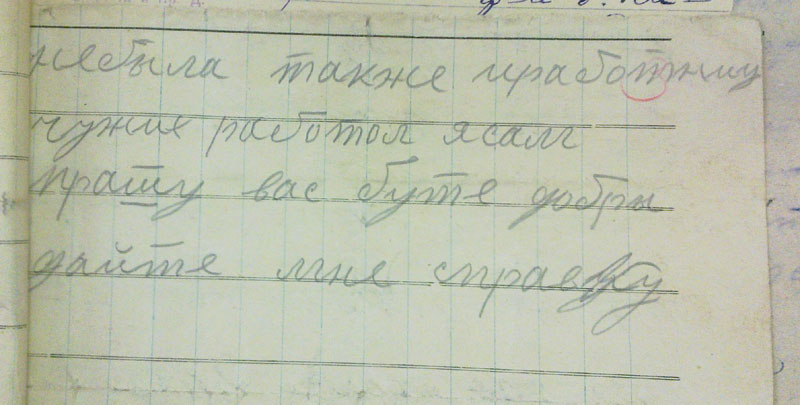 небыла также иработниц
чужих работал ясам
прашу вас буте добры
дайте мне справку